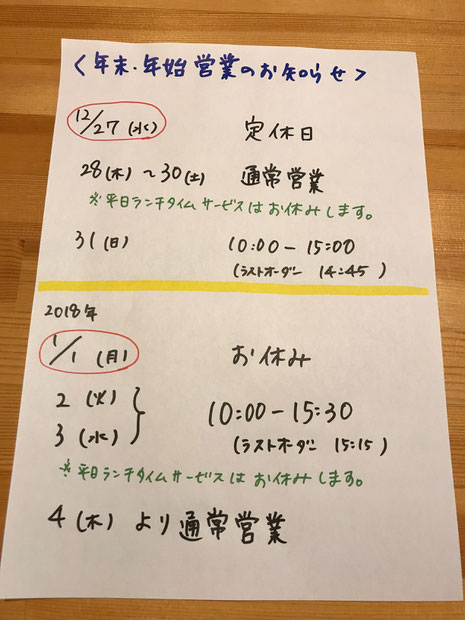 〈年末・年始営業のお知らせ〉
12/27(水) 定休日
28(木)〜30(土) 通常営業
※平日ランチタイムサービスはお休みします。
31(日) 10:00-15:00
(ラストオーダー 14:45)
2018年
1/1(月) お休み
2(火)
3(水)
10:00-15:30
(ラストオーダー 15:15)
※平日ランチタイムサービスはお休みします。
4(木)より通常営業